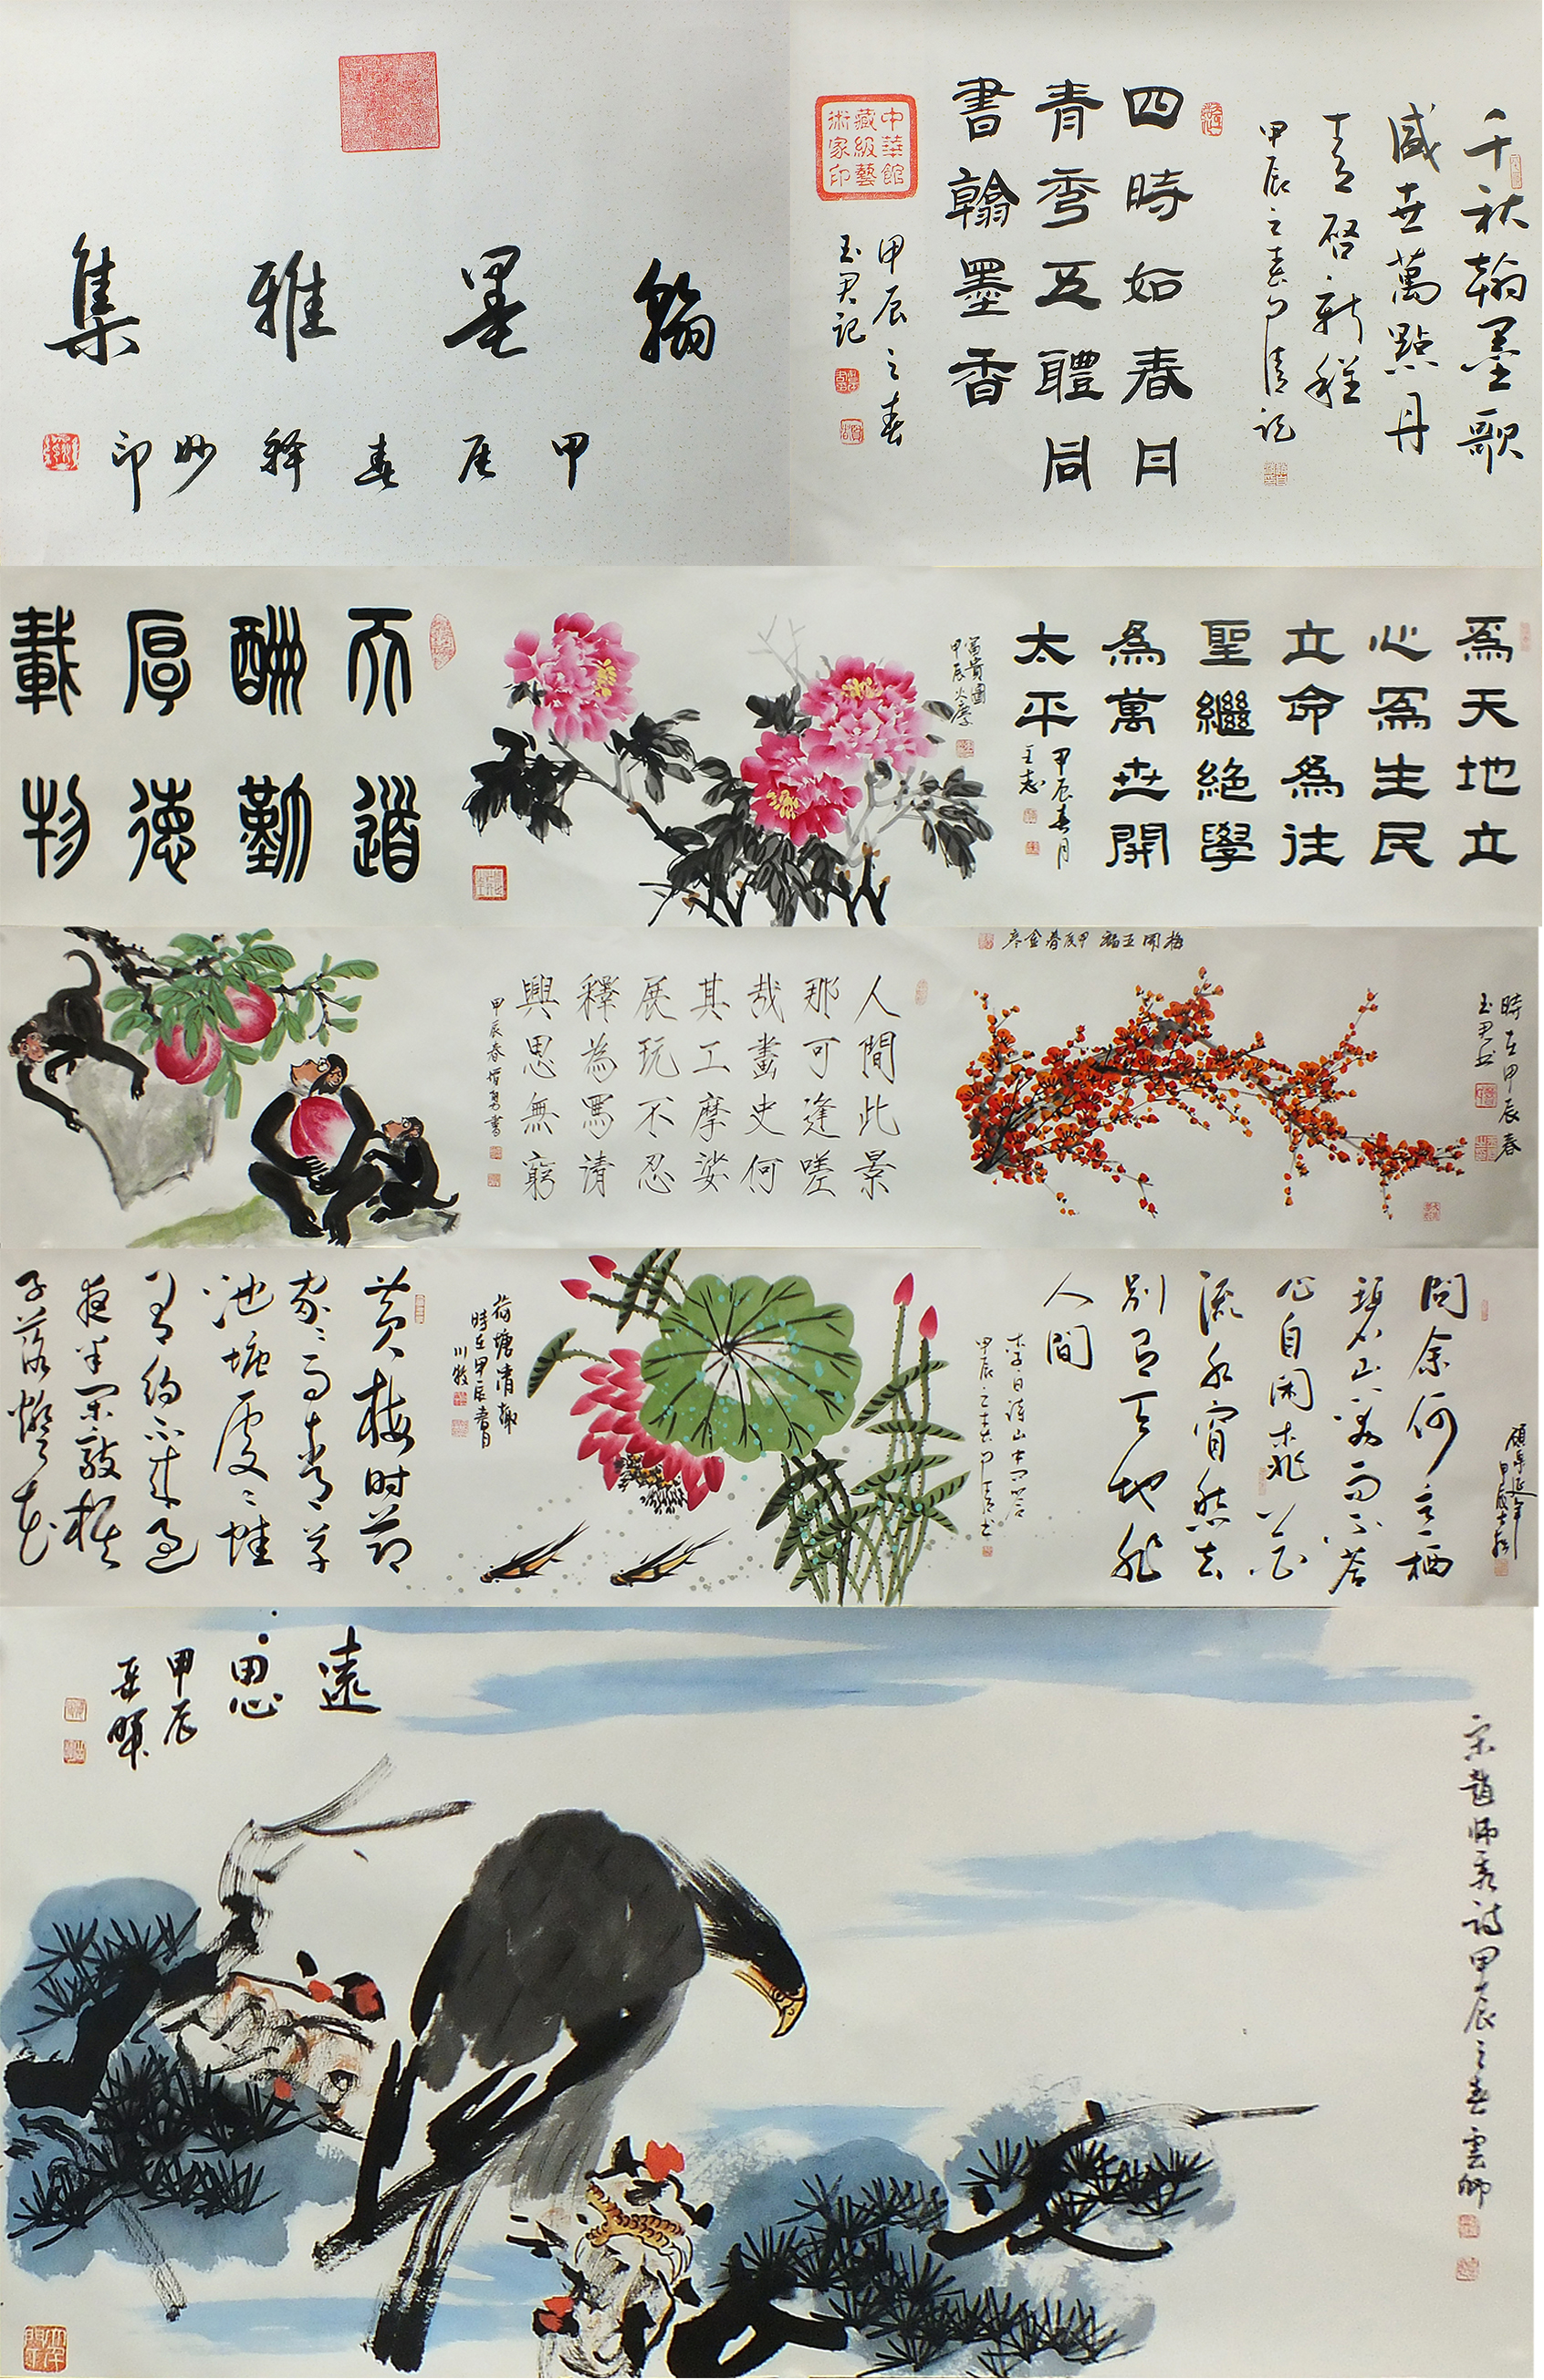 翰墨雅集
甲辰春释妙印
千秋翰墨歌
盛世萬點丹
青啓新程
甲辰之春
四時如春日
青秀五體同
書翰墨香
中華館
藏級藝
術家印
甲辰之春
玉君記
為天地立
心為生民
立命為往
聖繼絕學
為萬世開
太平
甲辰春月
王志
富貴圖
甲辰
天道
酬勤
厚德
載物
時在甲辰春
玉君书
梅開五福 甲辰春金彦
人間此景
那可逢嗟
哉畫史何
其工摩娑
展玩不忍
釋為寫請
興思無窮
甲辰春增勇書
碩果延年
問余何意栖
碧山笑而不答
心自闲桃花
流水窅然去
别有天地非
人間
李白诗山中问答
甲辰之春
荷塘清趣
時在甲辰春月
川牧
黄梅时节
家家雨青草
池塘處處蛙
有约不来过
夜半闲敲棋
子落燈花
宋趙师秀诗甲辰之春雲卿
遠思
甲辰